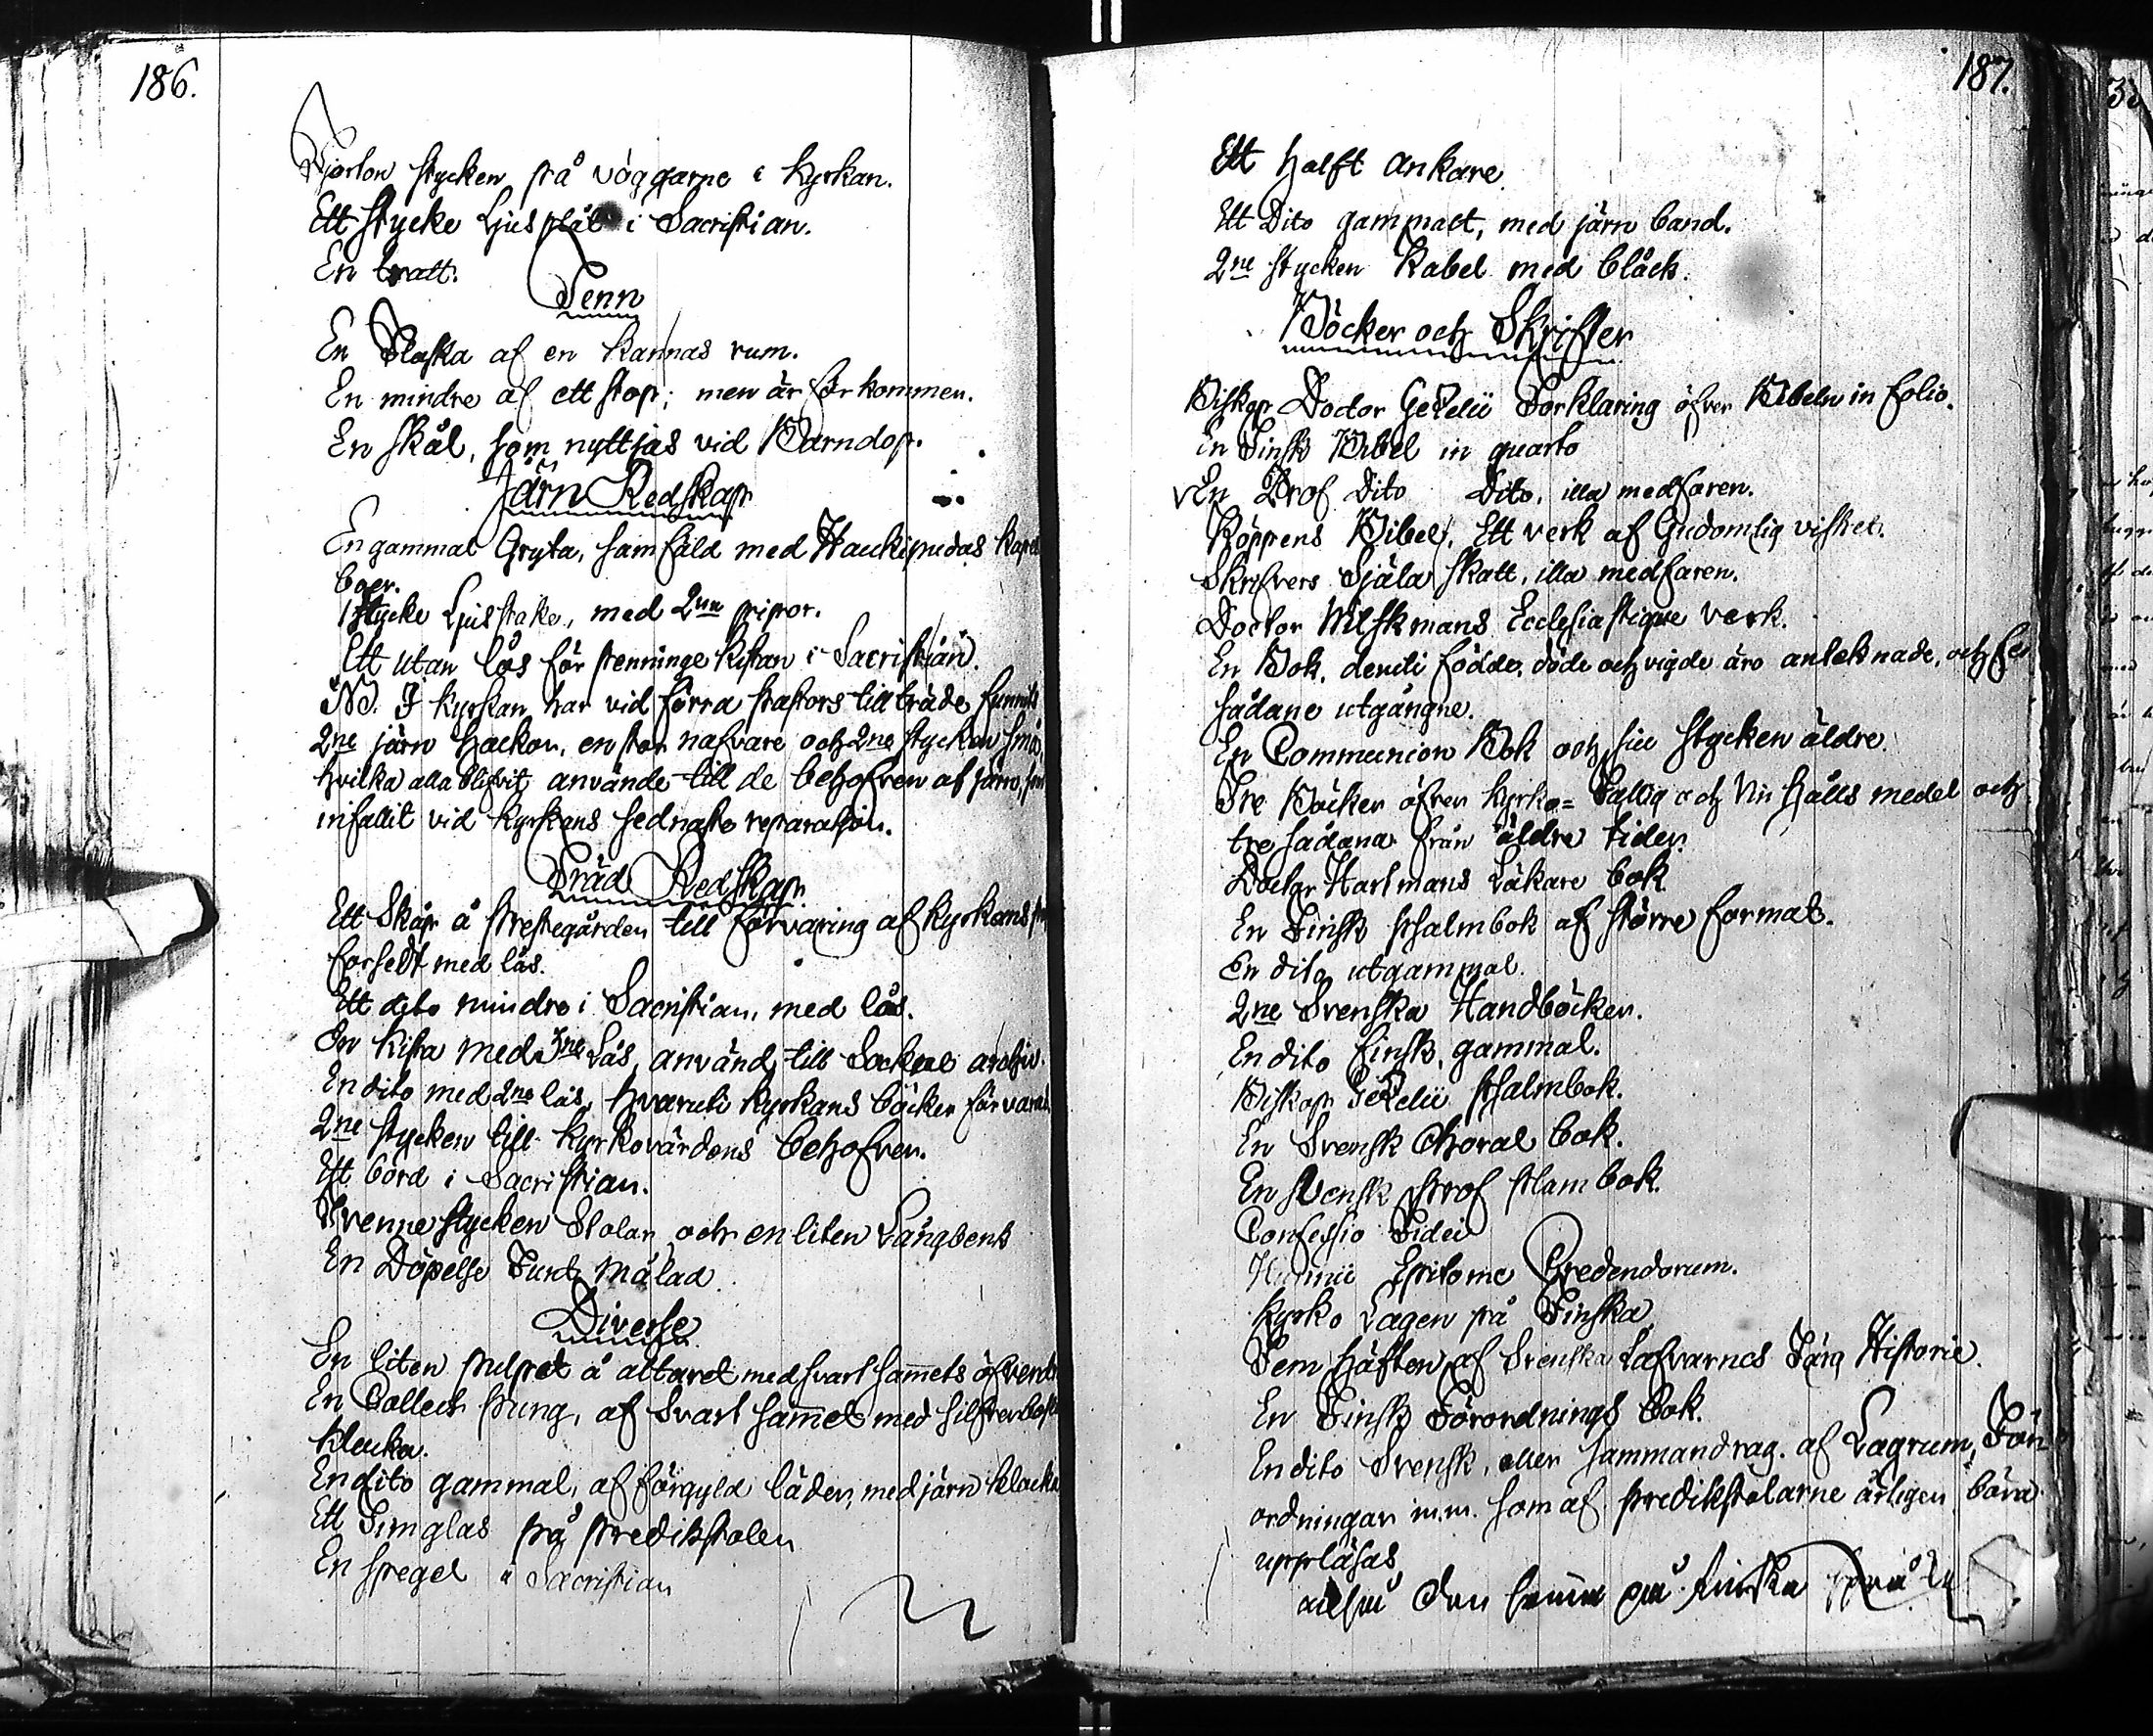 186.
Fjorton stycken på väggarne i Kyrkan.
Ett stycke Ljusplåt i Sacristian.
En tratt.
Tenn
En Flaska af en Kannas rum.
En mindre af ett stop; men är förkommen.
En skål, som nyttjas vid Barndop.
Järn Redskap
En gammal Gryta, samfäld med Haukipudas Kapell
boer.
1 stycke Ljusstake, med 2ne pipor.
Ett utan lås för penninge Kistan i Sacristian.
NB. I Kyrkan har vid förra pastors tillträde funnits
2ne järn hackor, en stor nafvare och 2ne stycken små,
hvilka alla blifvit använde till de behofven af järn, som
infallit vid Kyrkans sednaste reparation.
Träd Redskap.
Ett Skåp å Prestegården till förvaring af Kyrkans
försedt med lås.
Ett dito mindre i Sacristian, med lås.
En Kista med 3ne Lås, använd till Sockne archiv.
En dito med 2ne lås, hvaruti Kyrkans böcker förvaras
2ne stycken till Kyrkovärdens behofven.
Ett bord i Sacristian.
Tvenne stycken Stolar och en liten Långbenk
En Döpelse Funt målad.
Diverse
En liten pulpet å altaret med svart sammets öfverdr
En Collect Pung, af svart sammet med silfverbesl
klocka.
En dito gammal, af förgyld läder, med järn klocka
Ett Timglas på Predikstolen
En spegel i Sacristian
187.
Ett halft ankare.
Ett Dito gammalt, med järn band.
2ne stycken Kabel med bläck.
Böcker och Skrifter
Biskop Doctor Gezelii Förklaring öfver Bibeln in folio.
En Finsk Bibel in quarto
En Prof Dito Dito, illa medfaren.
Köppens Bibel, Ett verk af Gudomlig vishet.
Skrifvers Själa skatt, illa medfaren.
Doctor Wilskmans Ecclesiastique verk.
En Bok, deruti födde, döde och vigde äro anteknade, och
sådane utgångne.
En Communion Bok och sju stycken äldre.
Tre Böcker öfver Kyrko- Fattig och Nu hålls medel och
tre sådana från äldre tider.
Doctor Hartmans Läkare bok
En Finsk Psalmbok af större format.
En dito utgammal.
2ne Svenska Handböcker.
En dito Finsk, gammal.
Biskop Gezelii Psalmbok.
En Svensk Choral bok.
En svensk Prof Plambok.
Confessio Fidei
Hunnii Epitome Credendorum.
Kyrko Lagen på Finska
Fem häften af Svenska Läfvarnes Färg Historie.
En Finsk Förordnings bok.
En dito Svensk, eller sammandrag af Lagrum, För
ordningar m.m. som af Predikstolarne årligen böra
uppläsas
den på finska språket